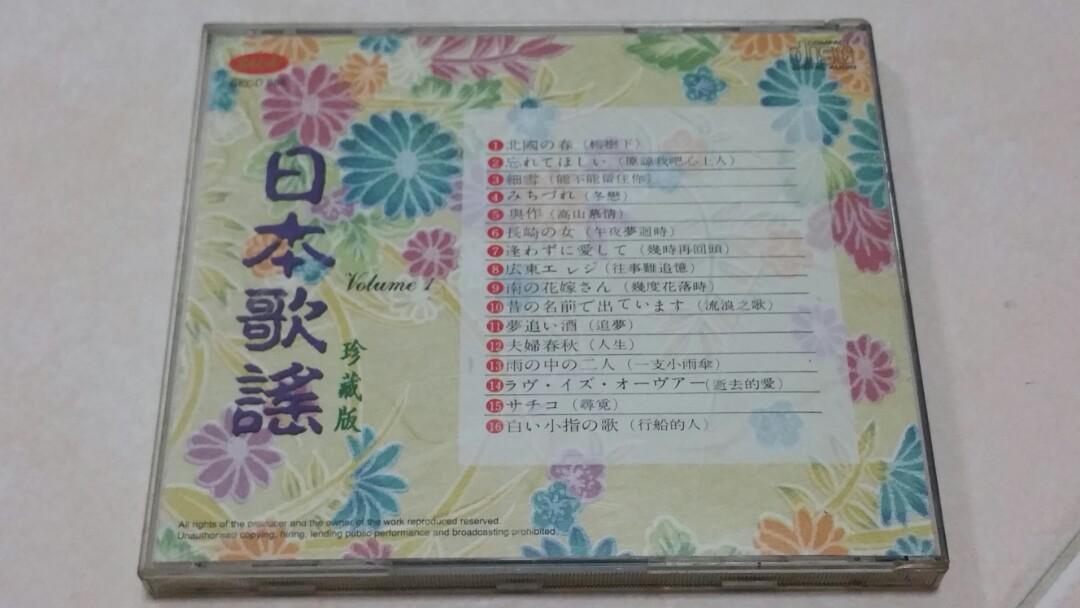 COMPACT
disc
DIGITAL AUDIO
日本歌謠
Volume 1
珍藏版
1 北國の春 (梅樹下)
2 忘れてほしい (原諒我吧心上人)
3 細雪 (能不能留住你)
4 みちづれ (冬戀)
5 與作 (高山慕情)
6 長崎の女 (午夜夢迴時)
7 逢わずに愛して (幾時再回頭)
8 広東エレジ (往事難追憶)
9 南の花嫁さん (幾度花落時)
10 昔の名前で出ています (流浪之歌)
11 夢追い酒 (追夢)
12 夫婦春秋 (人生)
13 雨の中の二人 (一支小雨傘)
14 ラヴ・イズ・オーヴアー(逝去的愛)
15 サチコ (尋覓)
16 白い小指の歌 (行船的人)
All rights of the producer and the owner of the work reproduced reserved.
Unauthorised copying, hiring, lending public performance and broadcasting prohibited.